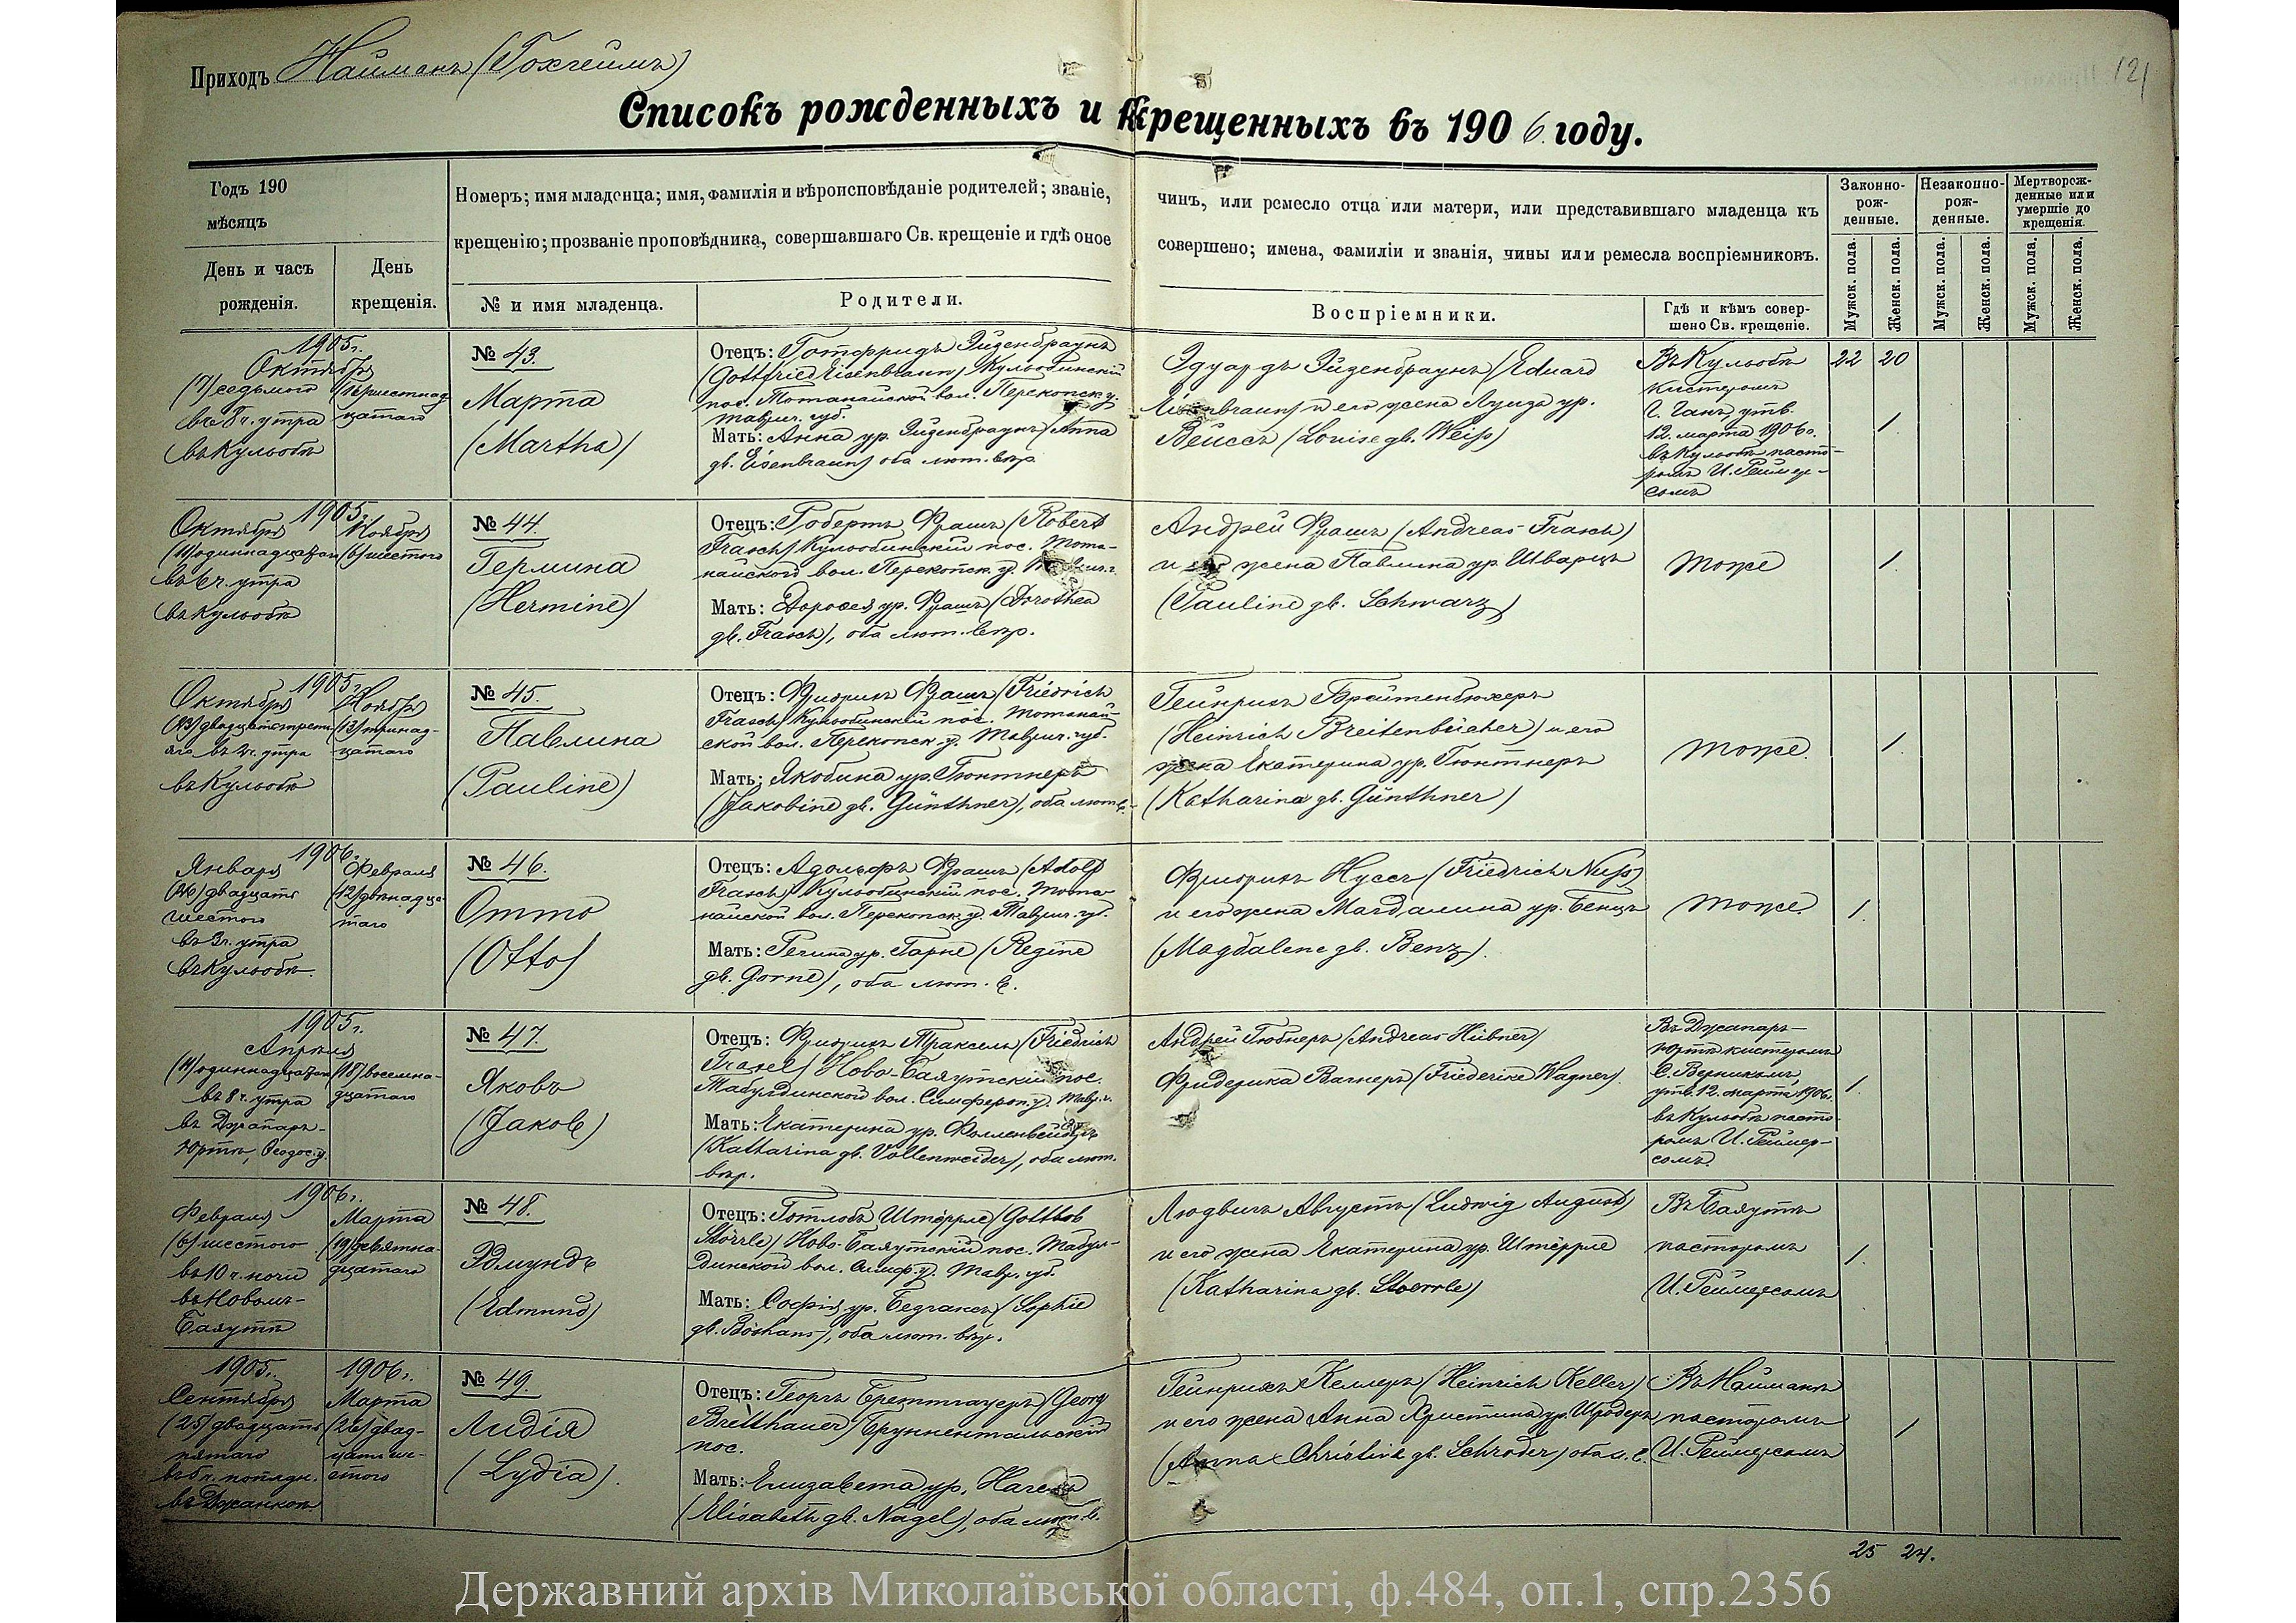 Приходъ Найманъ (Гохгеймъ)
121
Списокъ рожденныхъ и крещенныхъ въ 1906. году.
Годъ 190
мѣсяцъ
День и часъ рожденія.
День крещенія.
Номеръ; имя младенца; имя, фамилія и вѣроисповѣданіе родителей; званіе, чинъ, или ремесло отца или матери, или представившаго младенца къ
крещенію; прозваніе проповѣдника, совершавшаго Св. крещеніе и гдѣ оное совершено; имена, фамиліи и званія, чины или ремесла воспріемниковъ.
№ и имя младенца.
Родители.
Воспріемники.
Гдѣ и кѣмъ совер-
шено Св. крещеніе.
Законно-
рож-
денные.
Незаконно-
рож-
денные.
Мертворож-
денные или
умершіе до
крещенія.
Мужск. пола.
Женск. пола.
Мужск. пола.
Женск. пола.
Мужск. пола.
Женск. пола.
1905 г.
Октября
(7) седьмого
въ 8 ч. утра
въ Кульобѣ
(16) шестнад-
цатаго
№ 43.
Марта
(Martha)
Отецъ: Готфридъ Эйзенбраунъ
(Gottfried Eisenbraun) Кульобинскій
пос. Тотанайской вол. Перекопск. у.
Таврич. губ.
Мать: Анна ур. Эйзенбраунъ (Anna
gb. Eisenbraun) оба лют. вѣр.
Эдуардъ Эйзенбраунъ (Eduard
Eisenbraun) и его жена Луиза ур.
Вейссъ (Louise gb. Weiß)
Въ Кульобѣ
кистеромъ
Г. Ганъ, утв.
12. марта 1906 г.
въ Кульобѣ пасто-
ромъ И. Реймер-
сомъ
22 20
1.
1905 г.
Октября
(11) одиннадцатаго
въ 6 ч. утра
въ Кульобѣ
Ноября
(6) шестого
№ 44.
Гермина
(Hermine)
Отецъ: Робертъ Фрашъ (Robert
Frasch) Кульобинскій пос. Тота-
найской вол. Перекопск. у.
Мать: Доротея ур. Фрашъ (Dorothea
gb. Frasch), оба лют. вѣр.
Андрей Фрашъ (Andreas Frasch)
и его жена Павлина ур. Шварцъ
(Pauline gb. Schwarz)
Тоже
1.
1905 г.
Октября
(23) двадцать треть-
яго въ 2 ч. утра
въ Кульобѣ
Ноября
(13) тринад-
цатаго
№ 45.
Павлина
(Pauline)
Отецъ: Фридрихъ Фрашъ (Friedrich
Frasch) Кульобинскій пос. Тотанай-
ской вол. Перекопск. у. Таврич. губ.
Мать: Якобина ур. Гюнтнеръ
(Jakobine gb. Günthner), оба лют. в.
Гейнрихъ Брейтенбюхеръ
(Heinrich Breitenbücher) и его
жена Екатерина ур. Гюнтнеръ
(Katharina gb. Günthner)
Тоже.
1.
1906 г.
Января
(26) двадцать
шестого
въ 3 ч. утра
въ Кульобѣ.
Февраля
(12) двѣнадца-
таго
№ 46.
Отто
(Otto)
Отецъ: Адольфъ Фрашъ (Adolf
Frasch) Кульобинскій пос. Тота-
найской вол. Перекопск. у. Таврич. губ.
Мать: Регина ур. Гарне (Regine
gb. Gorne), оба лют. в.
Фридрихъ Нуссъ (Friedrich Nuß)
и его жена Магдалина ур. Бенцъ
(Magdalene gb. Benz).
Тоже.
1.
1905 г.
Апрѣля
(11) одиннадцатаго
въ 8 ч. утра
въ Джапаръ-
Юртѣ, Ѳеодос. у.
(18) восемна-
дцатаго
№ 47.
Яковъ
(Jakob)
Отецъ: Фридрихъ Траксель (Friedrich
Traxel) Ново-Баяутскій пос.
Табулдинской вол. Симфероп. у. Тавр. г.
Мать: Екатерина ур. Фолленвейдеръ
(Katharina gb. Vollenweider), оба лют.
вѣр.
Андрей Гюбнеръ (Andreas Hübner)
Фридерика Вагнеръ (Friederike Wagner).
Въ Джапаръ-
Юртѣ кистеромъ
утв. 12. марта 1906 г.
въ Кульобѣ пасто-
ромъ И. Реймер-
сомъ.
1.
1906 г.
Февраля
(6) шестого
въ 10 ч. ночи
въ Новомъ-
Баяутѣ
Марта
(19) девятна-
дцатаго
№ 48.
Эдмундъ
(Edmund)
Отецъ: Готлобъ Штёррле (Gottlob
Störrle) Ново-Баяутскій пос. Табул-
динской вол. Симф. у. Тавр. губ.
Мать: Софія ур. (Sophie
gb. Böshans), оба лют. вѣр.
Людвигъ Августъ (Ludwig August)
и его жена Екатерина ур. Штёррле
(Katharina gb. Stoerrle)
Въ Баяутѣ
пасторомъ
И. Реймерсомъ
1.
1905 г.
Сентября
(25) двадцать
пятаго
въ 6 ч. пополдн.
въ Джанкоѣ
1906 г.
Марта
(26) двад-
цать ше-
стого
№ 49.
Лидія
(Lydia).
Отецъ: Георгъ Бреттгауеръ (Georg
Bretthauer) Бруннентальскій
пос.
Мать: Елизавета ур. Нагель
(Elisabeth gb. Nagel), оба лют. в.
Гейнрихъ Келлеръ (Heinrich Keller)
и его жена Анна Христина ур. Шрёдеръ
(Anna Christine gb. Schröder) оба л. в.
Въ Найманѣ
пасторомъ
И. Реймерсомъ
1
25 24.
Державний архів Миколаївської області, ф.484, оп.1, спр.2356